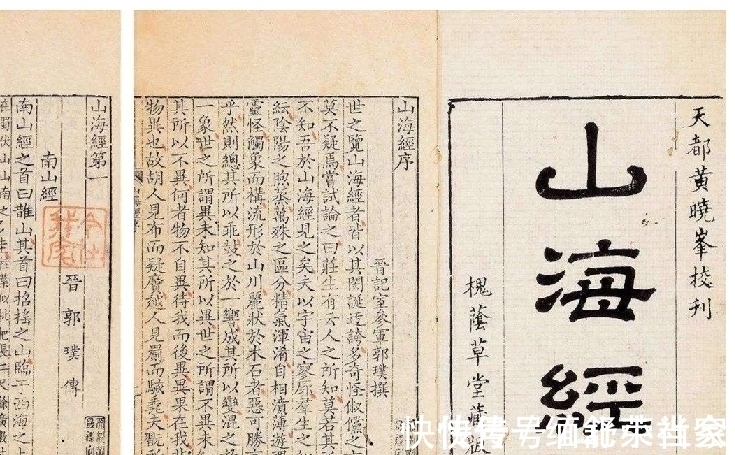 天都黃曉峯挍刊
山海經
槐蔭草堂藏
山海經序
晉記室參軍郭璞撰
世之覽山海經者皆以其閎誕迂誇多奇怪俶儻之
莫不疑焉嘗試論之曰莊生有云人之所知莫若其
不知吾於山海經見之矣夫以宇宙之寥廓羣生之
紜陰陽之煦蒸萬殊之區分精氣渾淆自相濆薄遊
靈怪觸象而構流形於山川麗狀於木石者惡可勝
乎然則總其所以乖鼓之於一響成其所以變混之
一象世之所謂異未知其所以異世之所謂不異未
其所以不異何者物不自異待我而後異異果在我
物異也故胡人見布而疑黂越人見罽而駭毳夫翫
山海經第一
南山經
晉 郭璞 傳
南山經之首曰䧿山其首曰招搖之山臨于西海之